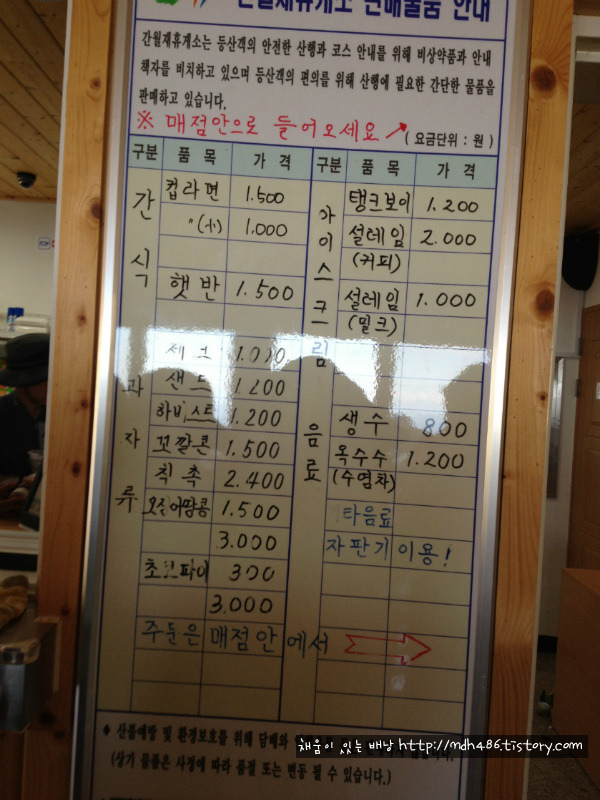 간월재휴게소 판매물품 안내
간월재휴게소는 등산객의 안전한 산행과 코스 안내를 위해 비상약품과 안내
책자를 비치하고 있으며 등산객의 편의를 위해 산행에 필요한 간단한 물품을
판매하고 있습니다.
※ 매점안으로 들어오세요 ↗ ( 요금단위 : 원 )
구분 품 목 가 격 구분 품 목 가 격
간식
컵라면 1.500
〃(小) 1.000
햇반 1.500
과자류
1.200
하비스트 1.200
꼬깔콘 1.500
칙촉 2.400
오징어땅콩 1.500
3.000
초코파이 300
3.000
아이스크림
탱크보이 1.200
설레임 2.000
(커피)
설레임 1.000
(밀크)
음료
생수 800
옥수수 1.200
(수염차)
타음료
자판기 이용!
주문은 매점안 에서
♦ 산불예방 및 환경보호를 위해 담배와
(상기 물품은 사정에 따라 품절 또는 변동 될 수 있습니다.)
채움이 있는 배낭 http://mdh486.tistory.com